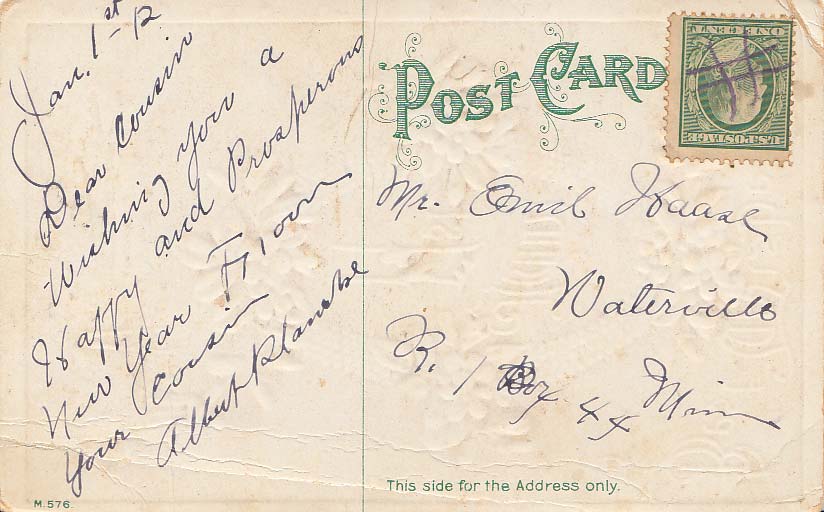 Jan. 1st - 12
Dear Cousin
Wishing you a
Happy and Prosperous
New Year From
Your Cousin
Albert Blanche
POST CARD
ONE CENT
U.S. POSTAGE
Mr. Emil Haase
Waterville
R. 1 Box 44 Minn
This side for the Address only.
M. 576.